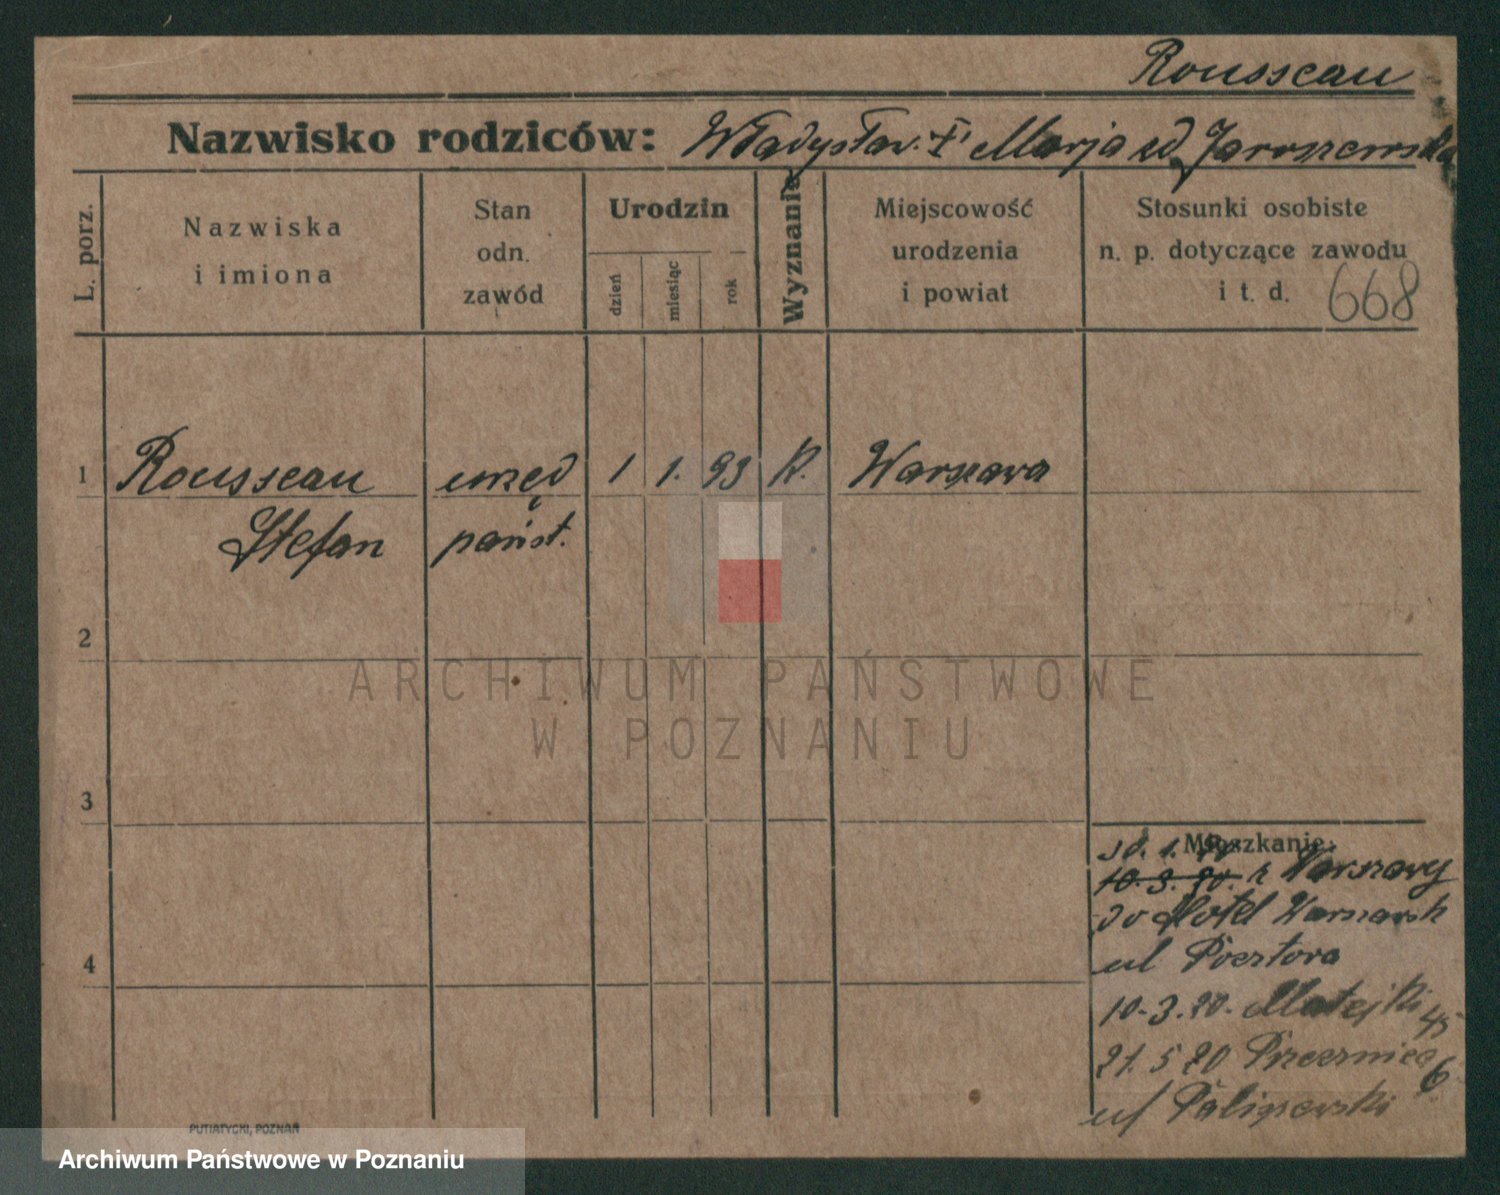 Rousseau
Nazwisko rodziców: Władysław. i Marja zd Jaroszewska
L. porz.
Nazwiska
i imiona
Stan
odn.
zawód
Urodzin
dzień
miesiąc
rok
Wyznanie
Miejscowość
urodzenia
i powiat
Stosunki osobiste
n. p. dotyczące zawodu
i t. d. 668
1 Rousseau urzęd 1 1. 93 K. Warszawa
Stefan państ.
2
3
4
Mieszkanie:
10.3.20. z Warszawy
do Hotel Warszawsk
ul Pocztowa
10.3.20. Matejki 45
21.5 20 Przecznica 6
ul
PUTIATYCKI, POZNAŃ
ARCHIWUM PAŃSTWOWE
W POZNANIU
Archiwum Państwowe w Poznaniu